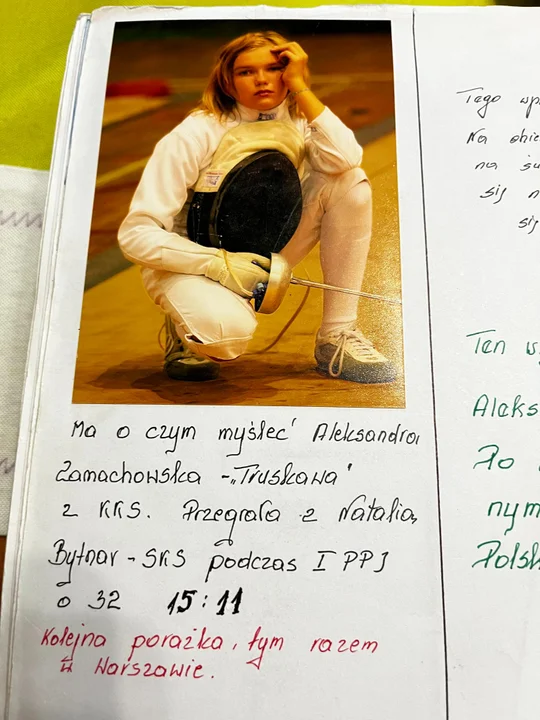 Ma o czym myśleć Aleksandra
Zamachowska - „Truskawa"
z KKS. Przegrała z Natalią
Bytnar - SKS podczas I PPJ
o 32 15:11
Kolejna porażka, tym razem
w Warszawie.
Tego
Na
na
się
się
Ten
Po